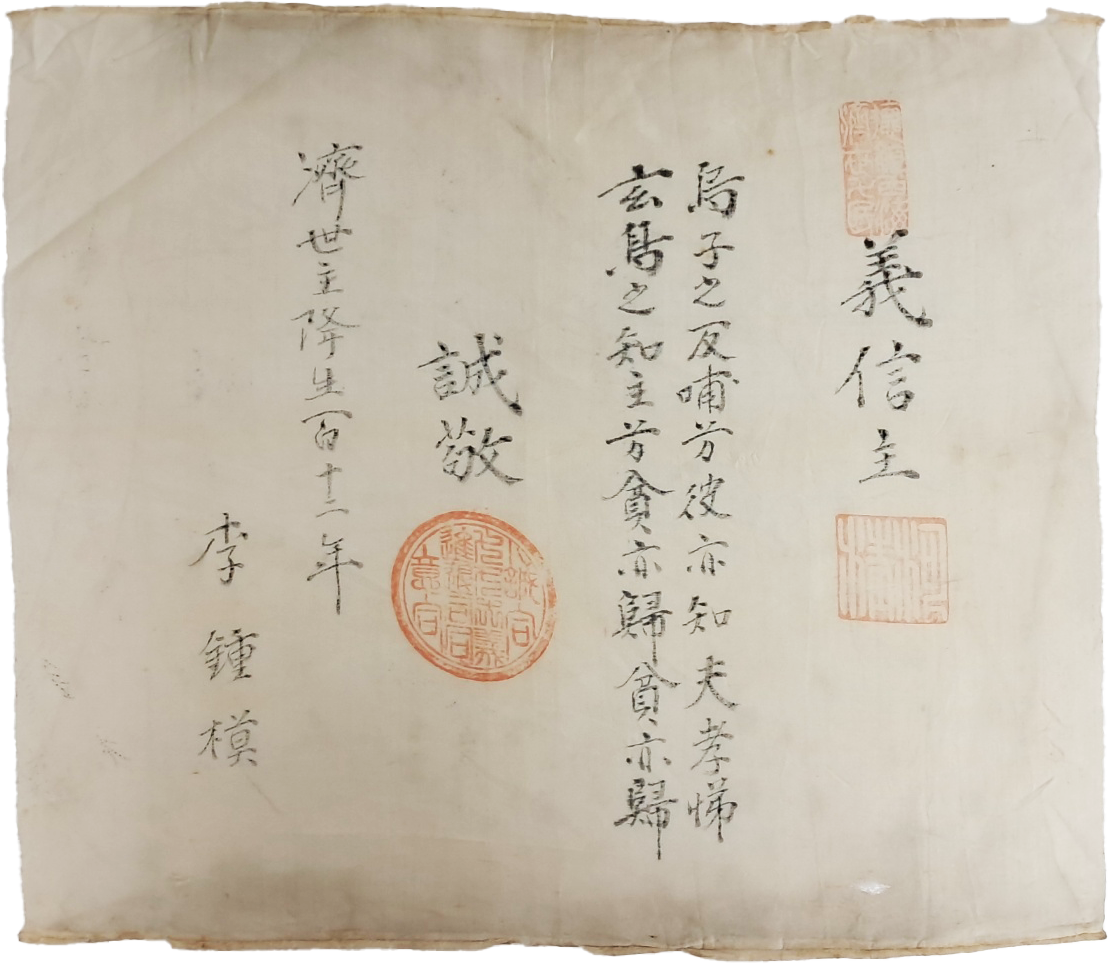 義信主
烏子之反哺兮彼亦知夫孝悌
玄鳥之知主兮貧亦歸貧亦歸
誠敬
濟世主降生百十二年
李鍾模